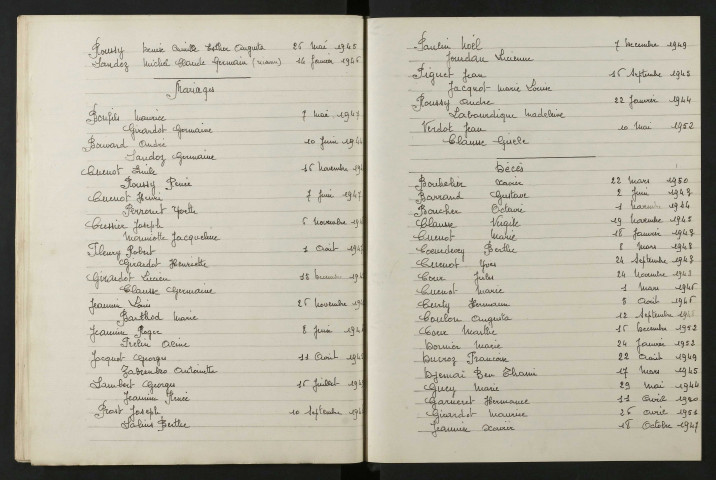 Roussy Denise Camille Esther Augusta 26 Mai 1945
Sandoz Michel Claude Germain 14 Janvier 1946
Mariages
Bonfils Maurice 7 Mai 194
Girardot Germaine
Bouvard André 10 Juin 194
Sandoz Germaine
Cuenot Emile 16 Novembre 19
Roussy Renée
Cuenot Henri 7 Juin 194
Perronet Yvette
Cussier Joseph 6 Novembre 19
Marmotte Jacqueline
Fleury Robert 1 Août 19
Girardot Henriette
Girardot Lucien 18
Clausse Germaine
Jeannin Louis 26 Novembre 19
Barthod Marie
Jeannin Roger 8 Juin 194
Aline
Jacquot Georges 11 Août 194
Antoinette
Lambert Georges 16 Juillet 194
Jeannin Renée
Prost Joseph 10 Septembre 194
Salins Berthe
Paulin Noël 7 Décembre 1949
Jourdan Lucienne
Piguet Jean 15 Septembre 1945
Jacquot Marie Louise
Roussy André 22 Janvier 1944
Labourdique Madeleine
Verdot Jean 10 Mai 1952
Clausse Gisèle
Décès
Bouhelier Xavier 22 Mars 1950
Barrand Gustave 2 Juin 194
Boucher Octavie 1 Novembre 1944
Clausse Virgile 19 Novembre 1945
Cuenot Marie 18 Janvier 194
Coeurdevey Berthe 8 Mars 1948
Cuenot Yves 24 Septembre 194
Jules 24 Novembre 194
Cuenot Marie 1 Mars 1946
Hermann 8 Août 1946
Coulon Augusta 12 Septembre
15 Décembre 1952
Dornier Marie 24 Janvier 1952
Francois 22 Août 1949
Djemai Ben Chami 17 Mars 1945
Guey Marie 29 Mai 1944
Garneret Hermance 11 Avril 1950
Girardot Maurice 26 Avril 195
Jeannin Xavier 18 Octobre 1947